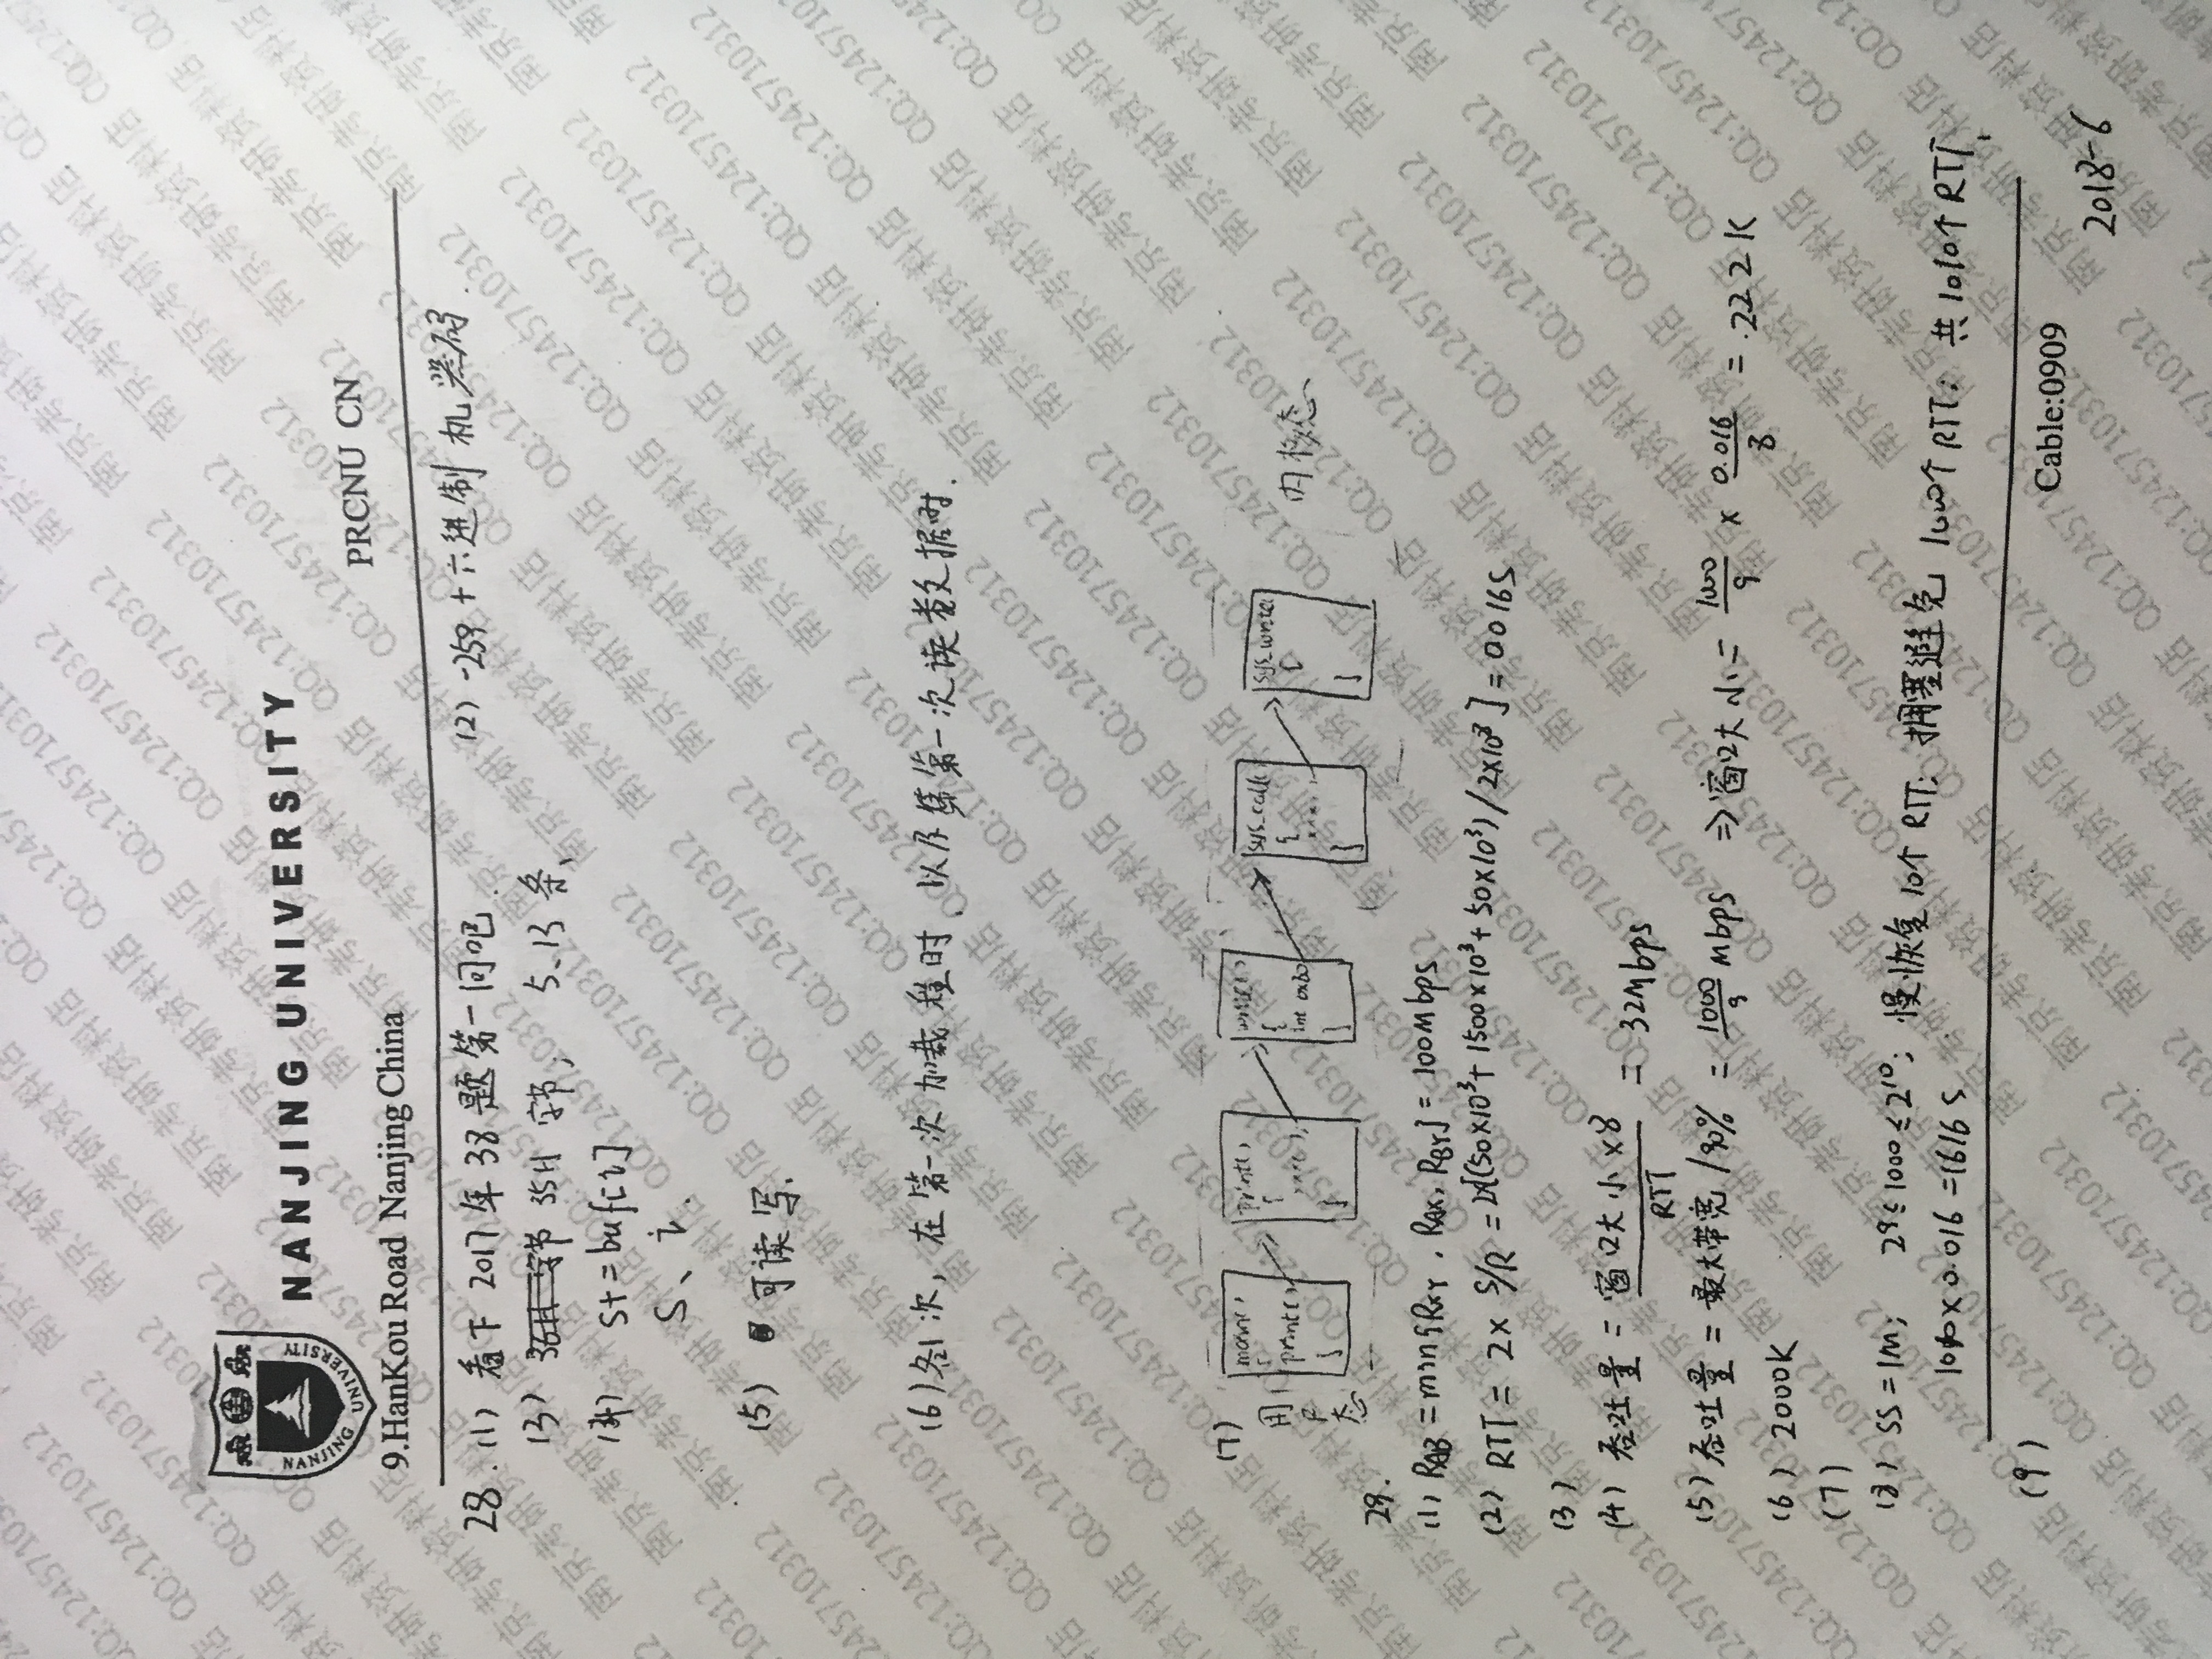 NANJING UNIVERSITY
NANJING UNIVERSITY
PRCNU CN
9.HanKou Road Nanjing China
28. (1) 看下 2017年 38题第一问吧. (2) -259 十六进制 机器码.
(3) 35H 字节; 5、13 条、
(4) s+=buf[i]
s、i.
(5) 可读写.
(6) 各1次, 在第一次加载程时、以及第一次读数据时.
(7)
用户态
main()
{
print()
}
print()
{
}
write()
{
int 0x80
}
sys_call(
{
}
sys_write(
{
}
内核态
29.
(1) R_AB = min{R_XY, R_AX, R_BY} = 100Mbps
(2) RTT = 2× S/R = 2×[(50×10³+1500×10³+50×10³)/2×10⁸] = 0.016s
(3)
(4) 吞吐量 = 窗口大小×8 / RTT = 32Mbps
(5) 吞吐量 = 最大带宽/90% = 1000/9 mbps ⇒ 窗口大小 = 1000/9 × 0.016/8 = 222K
(6) 2000K
(7)
(8) SS=1M; 2⁹≤1000≤2¹⁰; 慢恢复10个RTT; 拥塞避免 1000个RTT; 共1010个RTT,
1010×0.016=1616s
(9)
Cable:0909
2018-6
南京考研资料店 QQ:1245710312